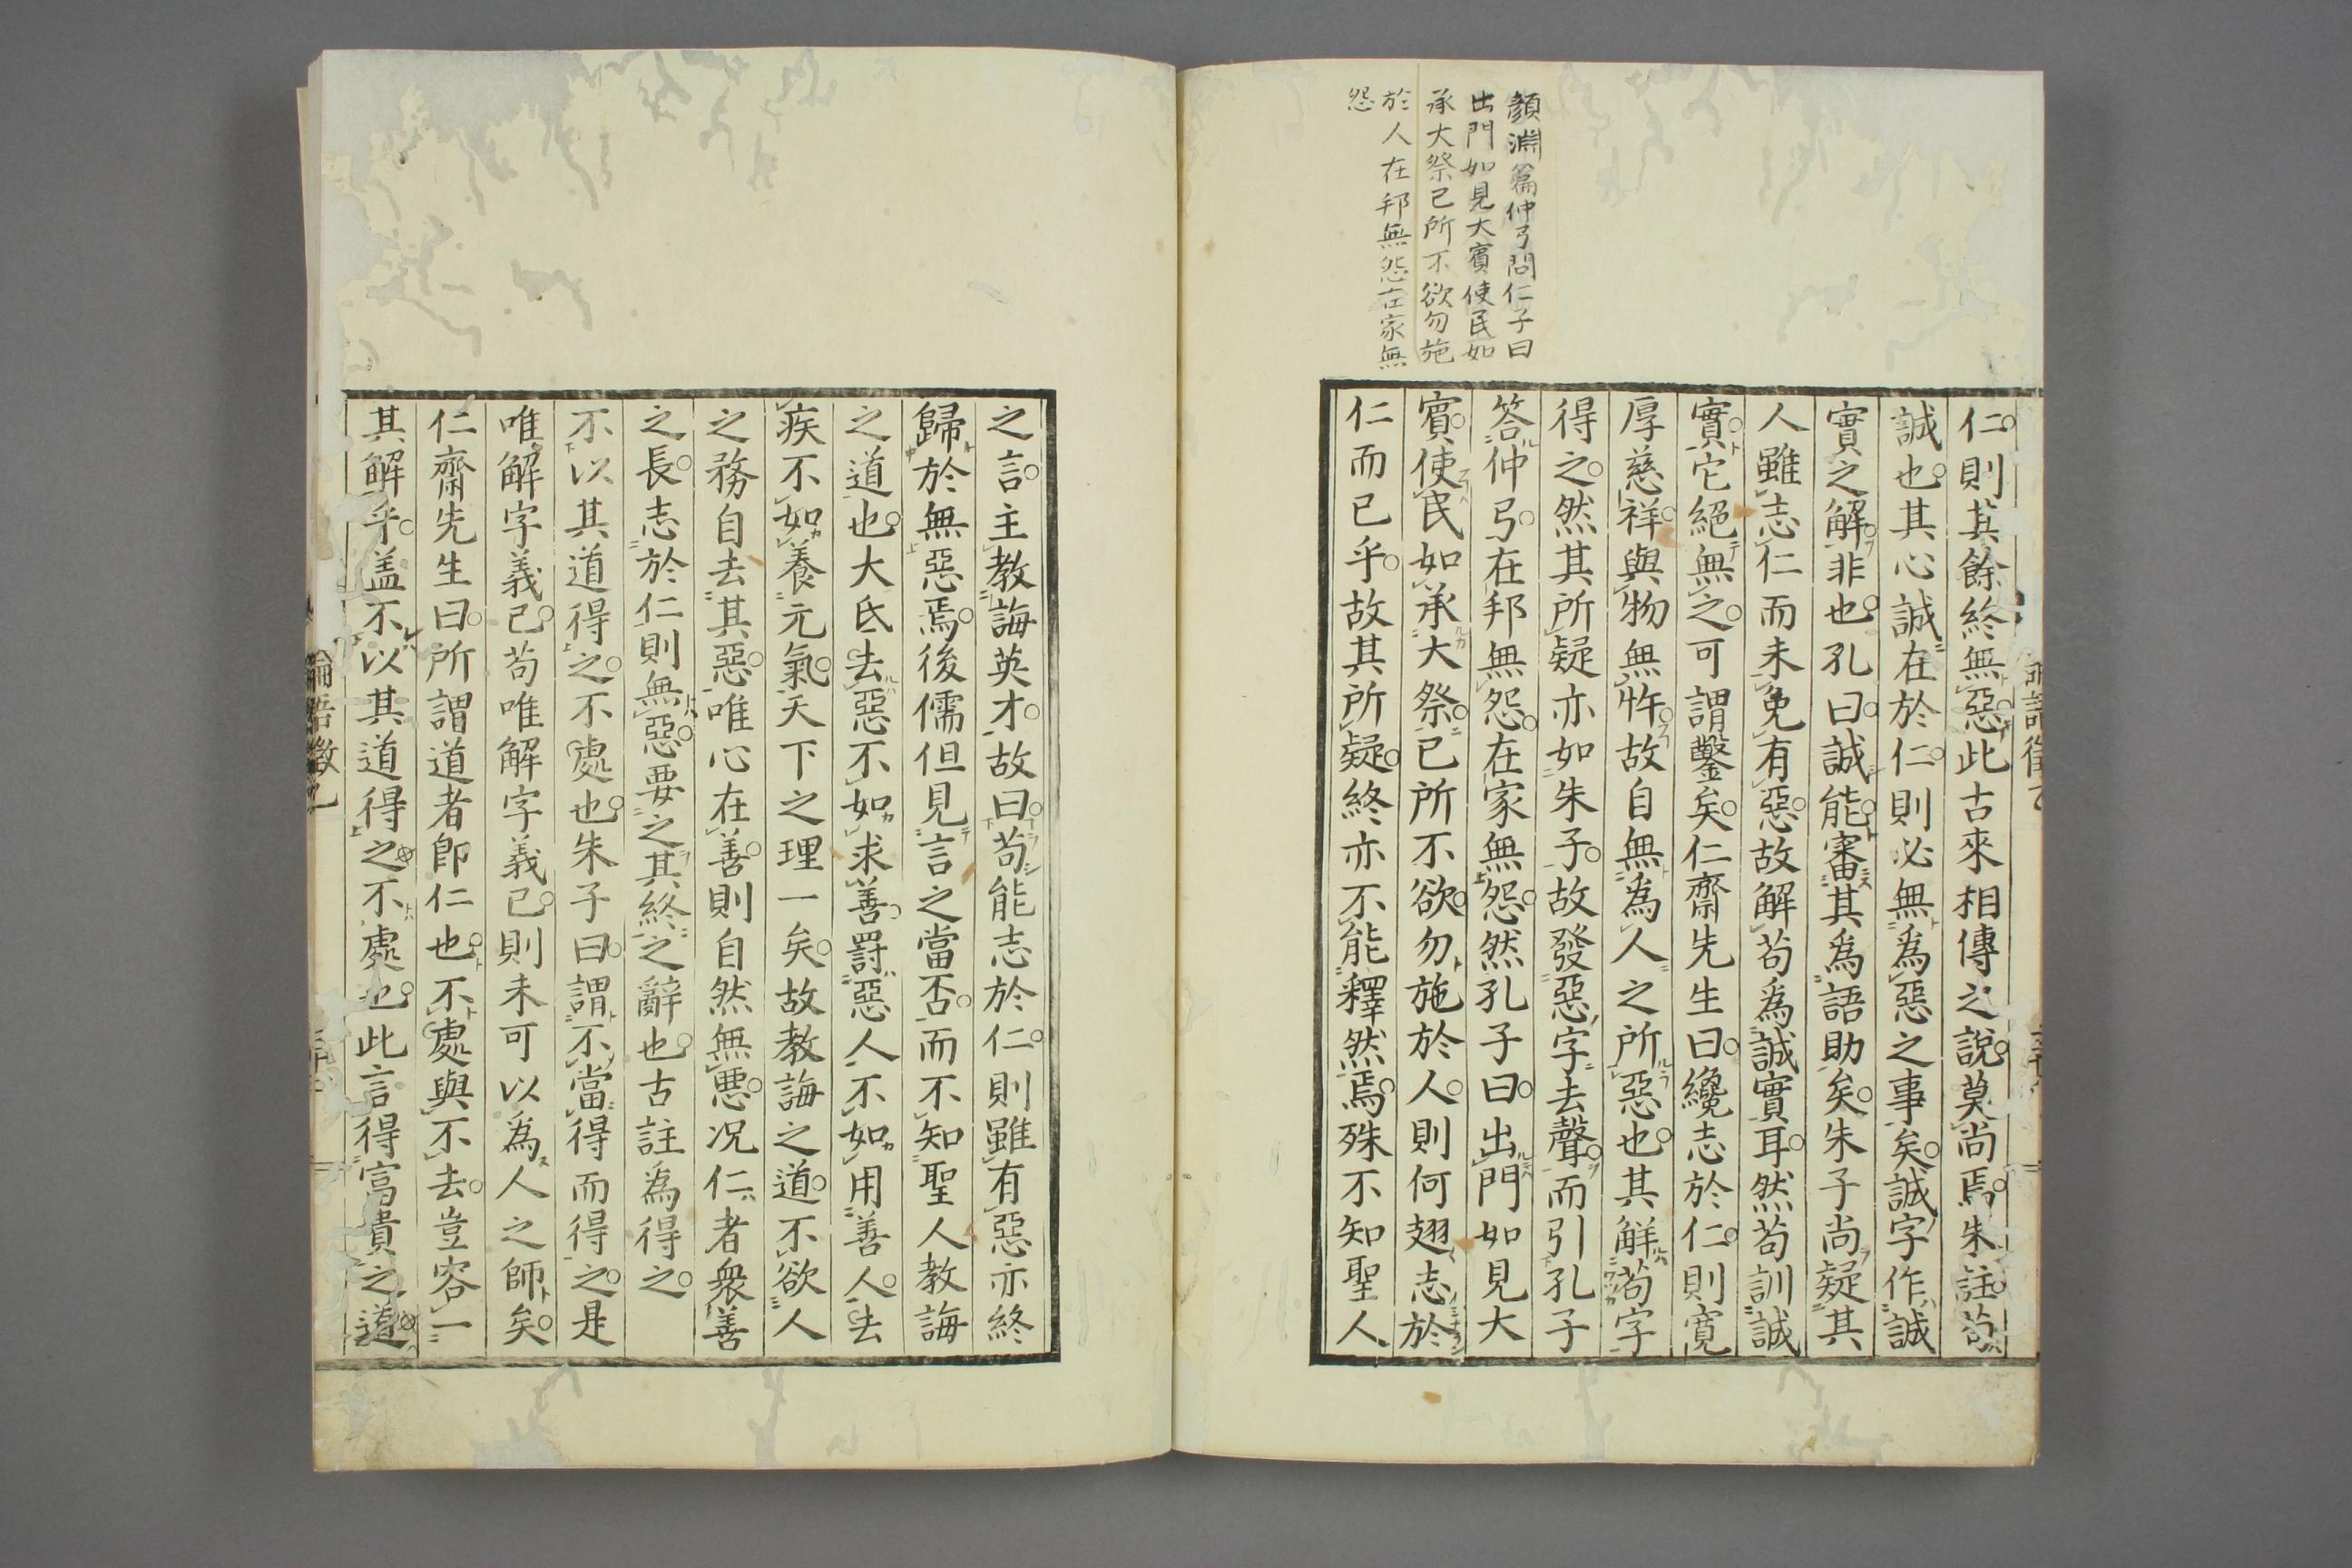 顏淵篇仲弓問仁子曰
出門如見大賓使民如
承大祭已所不欲勿施
於人在邦無怨在家無
怨
仁則其餘終無惡此古來相傳之說莫尚焉朱註苟
誠也其心誠在於仁則必無爲惡之事矣誠字作誠
實之解非也孔曰誠能審其爲語助矣朱子尚疑其
人雖志仁而未免有惡故解苟爲誠實耳然苟訓誠
實它絕無之可謂鑿矣仁齋先生曰纔志於仁則寬
厚慈祥與物無忤故自無為人之所惡也其解苟字
得之然其所疑亦如朱子故發惡字去聲而引孔子
答仲弓在邦無怨在家無怨然孔子曰出門如見大
賓使民如承大祭已所不欲勿施於人則何翅志於
仁而已乎故其所疑終亦不能釋然焉殊不知聖人
之言主教誨英才故曰苟能志於仁則雖有惡亦終
歸於無惡焉後儒但見言之當否而不知聖人教誨
之道也大氐去惡不如求善罸惡人不如用善人去
疾不如養元氣天下之理一矣故教誨之道不欲人
之務自去其惡唯心在善則自然無悪况仁者衆善
之長志於仁則無惡要之其終之辭也古註為得之
不以其道得之不處也朱子曰謂不當得而得之是
唯解字義已苟唯解字義已則未可以為人之師矣
仁齋先生曰所謂道者卽仁也不處與不去豈容一
其解乎盖不以其道得之不處也此言得富貴之道